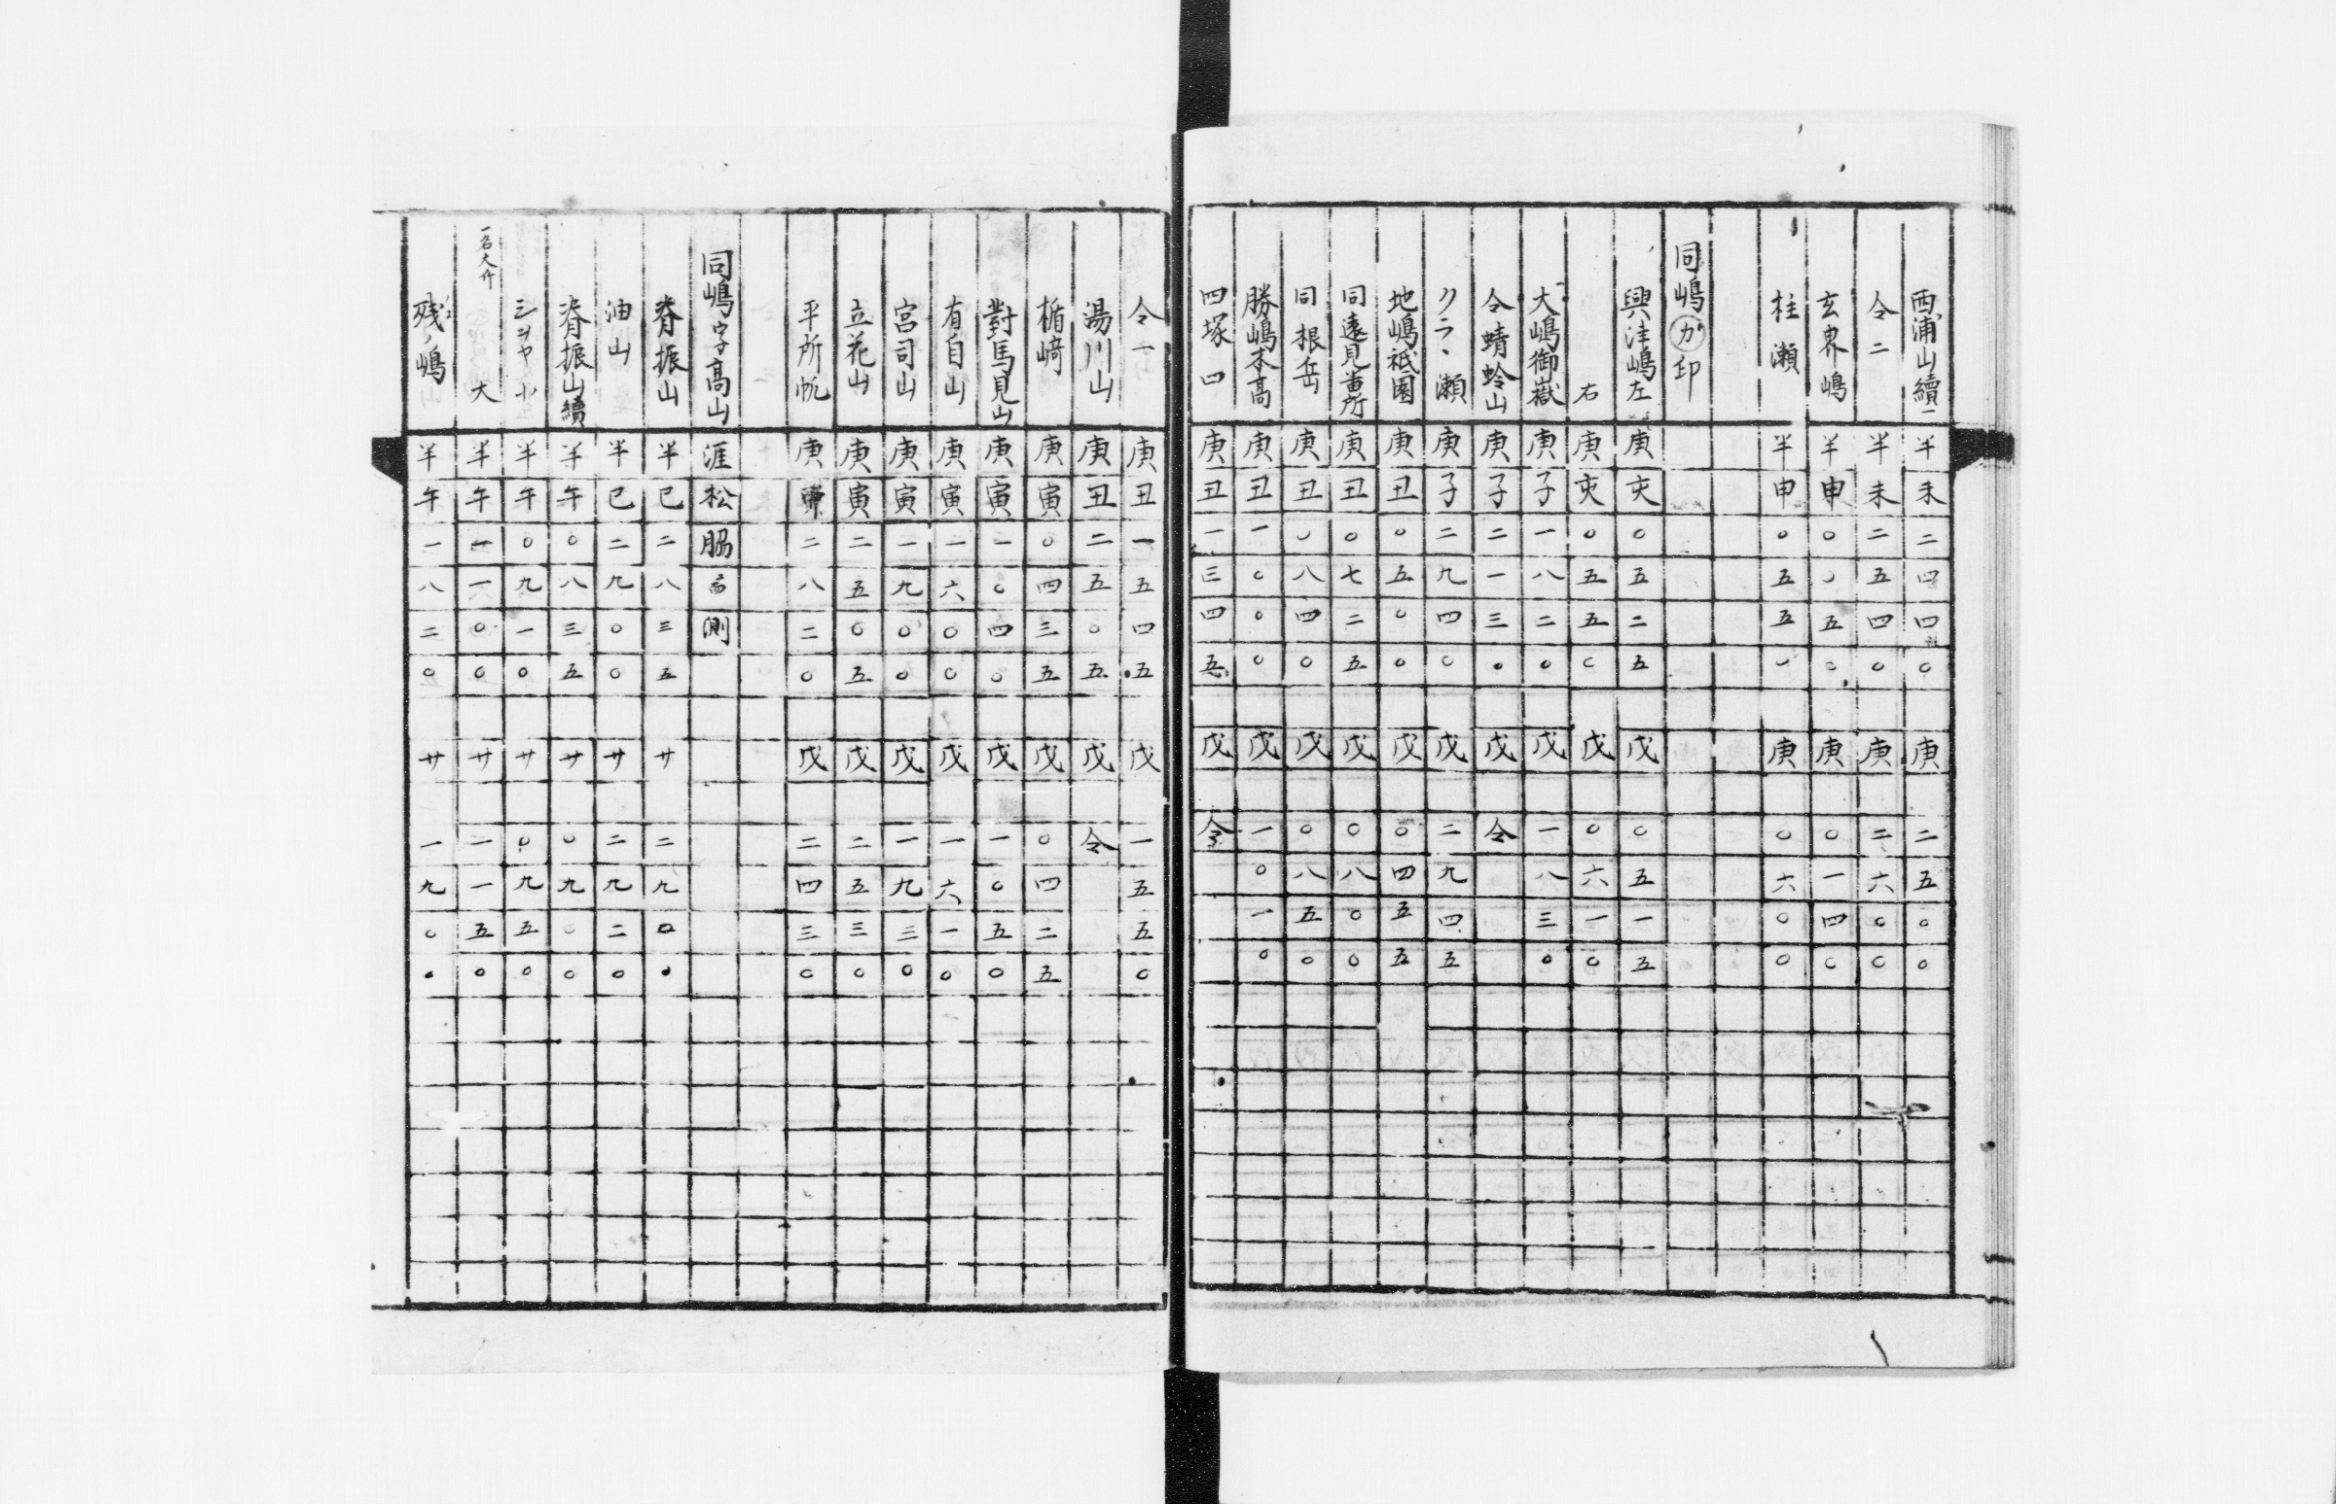 西浦山續一 半未二四四〇 庚二五〇〇
仝二 半未二五四〇 庚二六〇〇
玄界嶋 半申〇〇五〇 庚〇一四〇
柱瀬 半申〇五五〇 庚〇六〇〇
同嶋㋕印
興津嶋左 庚亥〇五二五 戊〇五一五
右 庚亥〇五五〇 戊〇六一〇
大嶋御嶽 庚子一八二〇 戊一八三〇
仝蜻蛉山 庚子二一三〇 戊仝
クラヽ瀬 庚子二九四〇 戊二九四五
地嶋祇園 庚丑〇五〇〇 戊〇四五五
同遠見番所 庚丑〇七二五 戊〇八〇〇
同根岳 庚丑〇八四〇 戊〇八五〇
勝嶋本高 庚丑一〇〇〇 戊一〇一〇
四塚四 庚丑一三四五 戊仝
仝一 庚丑一五四五 戊一五五〇
湯川山 庚丑二五〇五 戊仝
楯﨑 庚寅〇四三五 戊〇四二五
對馬見山 庚寅一〇四〇 戊一〇五〇
有自山 庚寅一六〇〇 戊一六一〇
宮司山 庚寅一九〇〇 戊一九三〇
立花山 庚寅二五〇五 戊二五三〇
平所帆 庚卯二八二〇 戊二四三〇
同嶋字高山 涯松脇ニ而測
脊振山 半巳二八三五 廿二九〇〇
油山 半巳二九〇〇 廿二九二〇
脊振山續 半午〇八三五 廿〇九〇〇
三ツヤ小 半午〇九一〇 廿〇九五〇
一名大仵 大 半午一一〇〇 廿一一五〇
残ノ嶋 半午一八二〇 廿一九〇〇